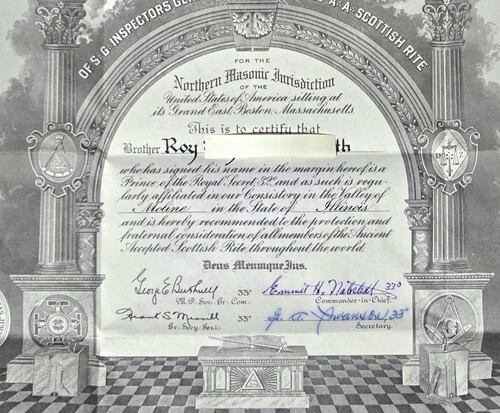 OF S.G. INSPECTORS A.A. SCOTTISH RITE
FOR THE
Northern Masonic Jurisdiction
OF THE
United States of America sitting at
its Grand East, Boston, Massachusetts.
This is to certify that
Brother Roy th
who has signed his name in the margin hereof is a
Prince of the Royal Secret 32° and as such is regu-
larly affiliated in our Consistory in the Valley of
Moline in the State of Illinois
and is hereby recommended to the protection and
fraternal consideration of all members of the Ancient
Accepted Scottish Rite throughout the world.
Deus Meumque Jus.
George E. Bushnell 33° Emmet H. 33°
M.P. Sov. Gr. Com. Commander-in-Chief.
Frank S. Merrill 33° Swanson 33°
Gr. Secy. Genl. Secretary.